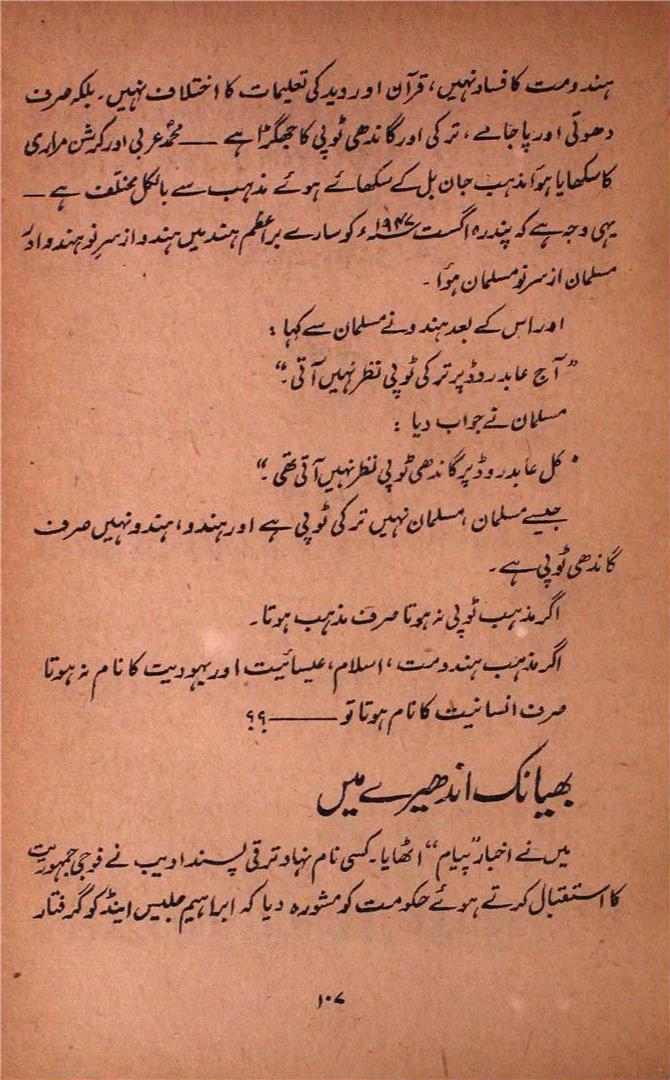 ہندو مت کا فساد نہیں، قرآن اور وید کی تعلیمات کا اختلاف نہیں۔ بلکہ صرف
دھوتی اور پاجامے، ترکی اور گاندھی ٹوپی کا جھگڑا ہے — محمدؐ عربی اور کرشن مراری
کا سکھایا ہوا مذہب جان بل کے سکھائے ہوئے مذہب سے بالکل مختلف ہے —
یہی وجہ ہے کہ پندرہ اگست ۱۹۴۷ء کو سارے براعظم ہند میں ہندو از سرِ نو ہندو اور
مسلمان از سرِ نو مسلمان ہوا۔
اور اس کے بعد ہندو نے مسلمان سے کہا :
"آج عابد روڈ پر ترکی ٹوپی نظر نہیں آتی۔"
مسلمان نے جواب دیا :
"کل عابد روڈ پر گاندھی ٹوپی نظر نہیں آتی تھی۔"
جیسے مسلمان، مسلمان نہیں ترکی ٹوپی ہے اور ہندو، ہندو نہیں صرف
گاندھی ٹوپی ہے۔
اگر مذہب ٹوپی نہ ہوتا صرف مذہب ہوتا۔
اگر مذہب ہندو مت، اسلام، عیسائیت اور یہودیت کا نام نہ ہوتا
صرف انسانیت کا نام ہوتا تو —— ؟؟
بھیانک اندھیرے میں
میں نے اخبار "پیام" اٹھایا۔ کسی نام نہاد ترقی پسند ادیب نے فوجی جمہوریت
کا استقبال کرتے ہوئے حکومت کو مشورہ دیا کہ ابراہیم جلیس اینڈ کو گرفتار
۱۰۷